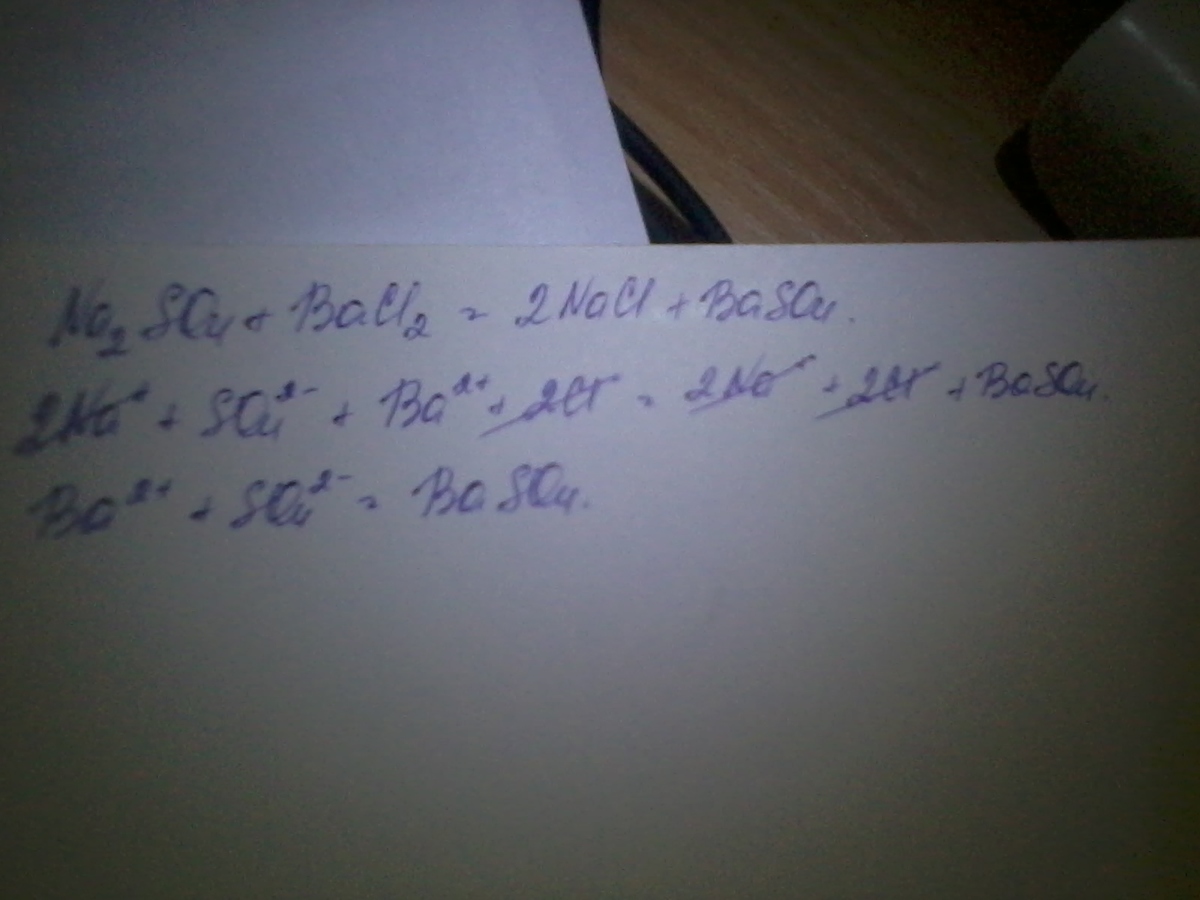 Na₂SO₄ + BaCl₂ = 2NaCl + BaSO₄.
2Na⁺ + SO₄²⁻ + Ba²⁺ + 2Cl⁻ = 2Na⁺ + 2Cl⁻ + BaSO₄.
Ba²⁺ + SO₄²⁻ = BaSO₄.